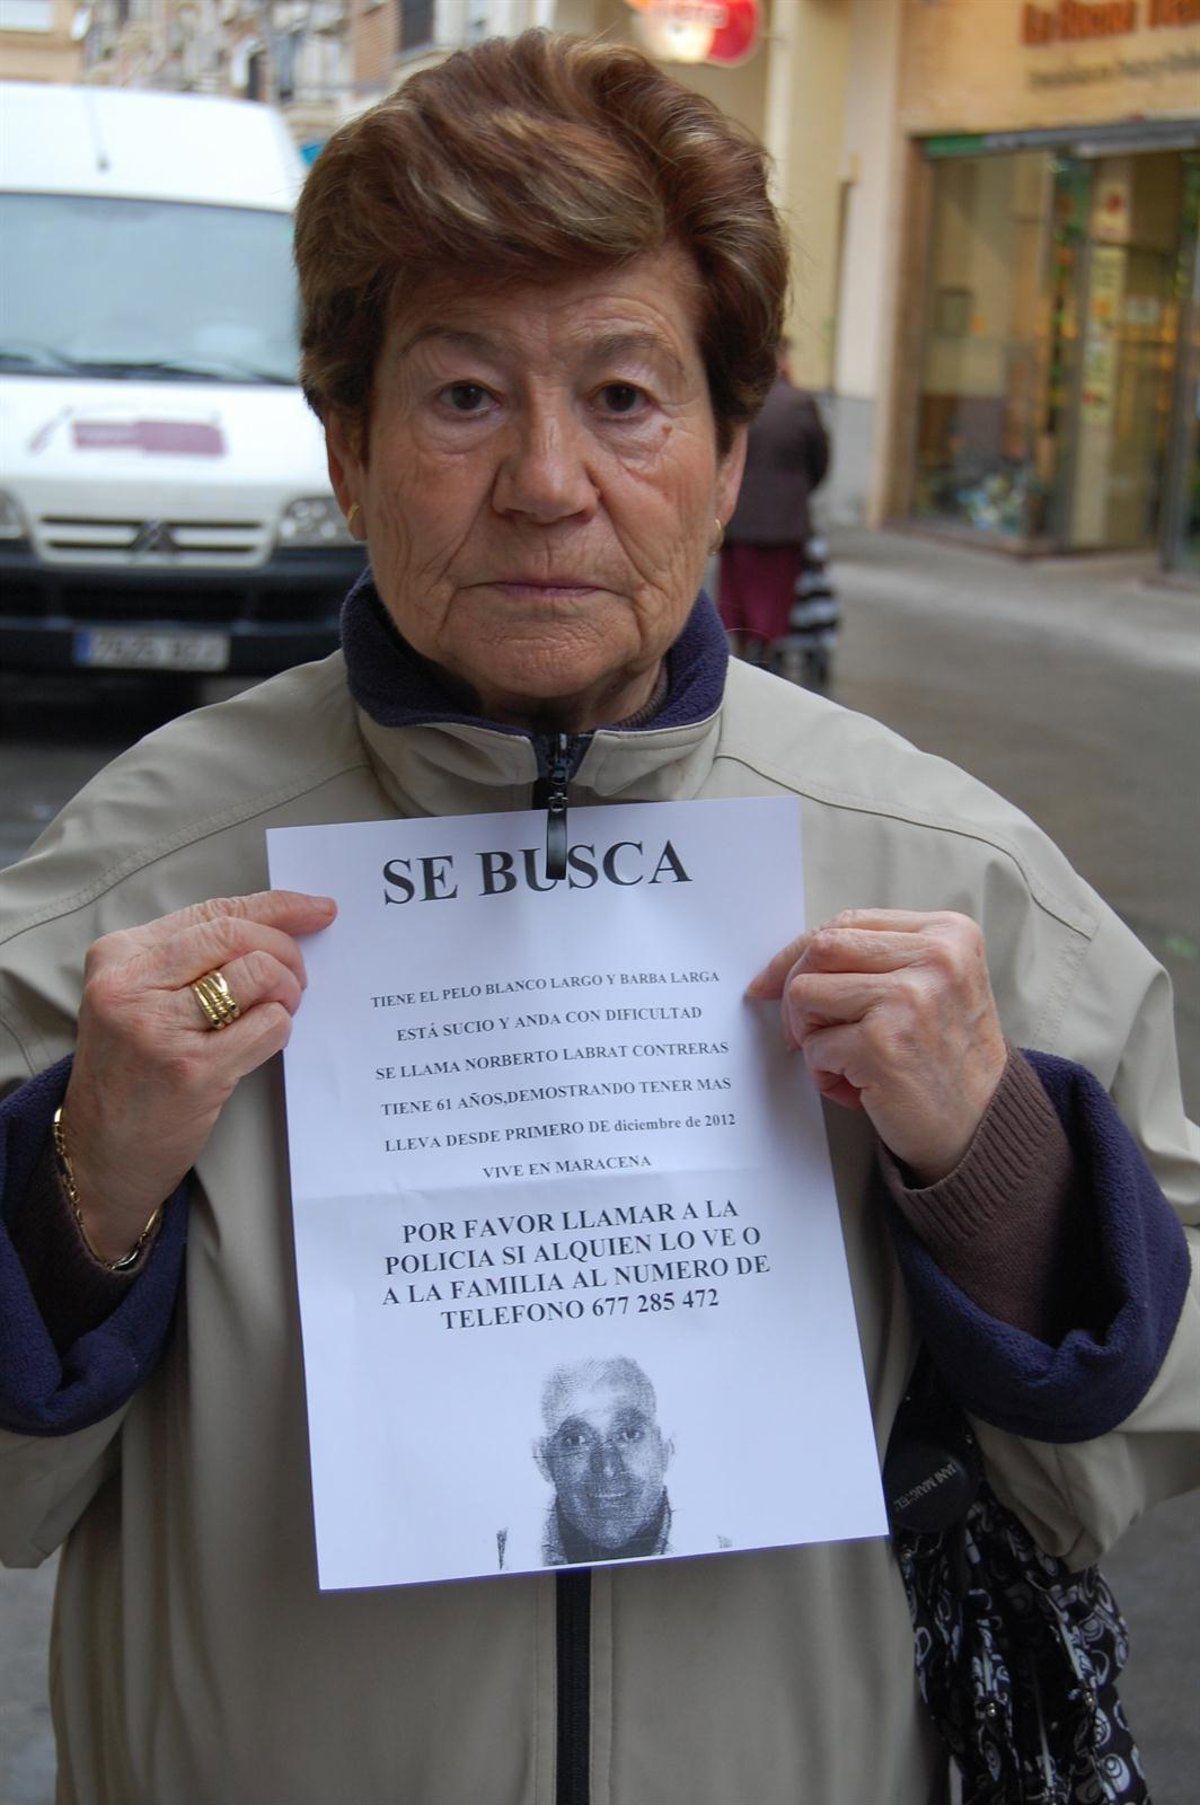 SE BUSCA
TIENE EL PELO BLANCO LARGO Y BARBA LARGA
ESTÁ SUCIO Y ANDA CON DIFICULTAD
SE LLAMA NORBERTO LABRAT CONTRERAS
TIENE 61 AÑOS,DEMOSTRANDO TENER MAS
LLEVA DESDE PRIMERO DE diciembre de 2012
VIVE EN MARACENA
POR FAVOR LLAMAR A LA
POLICIA SI ALQUIEN LO VE O
A LA FAMILIA AL NUMERO DE
TELEFONO 677 285 472